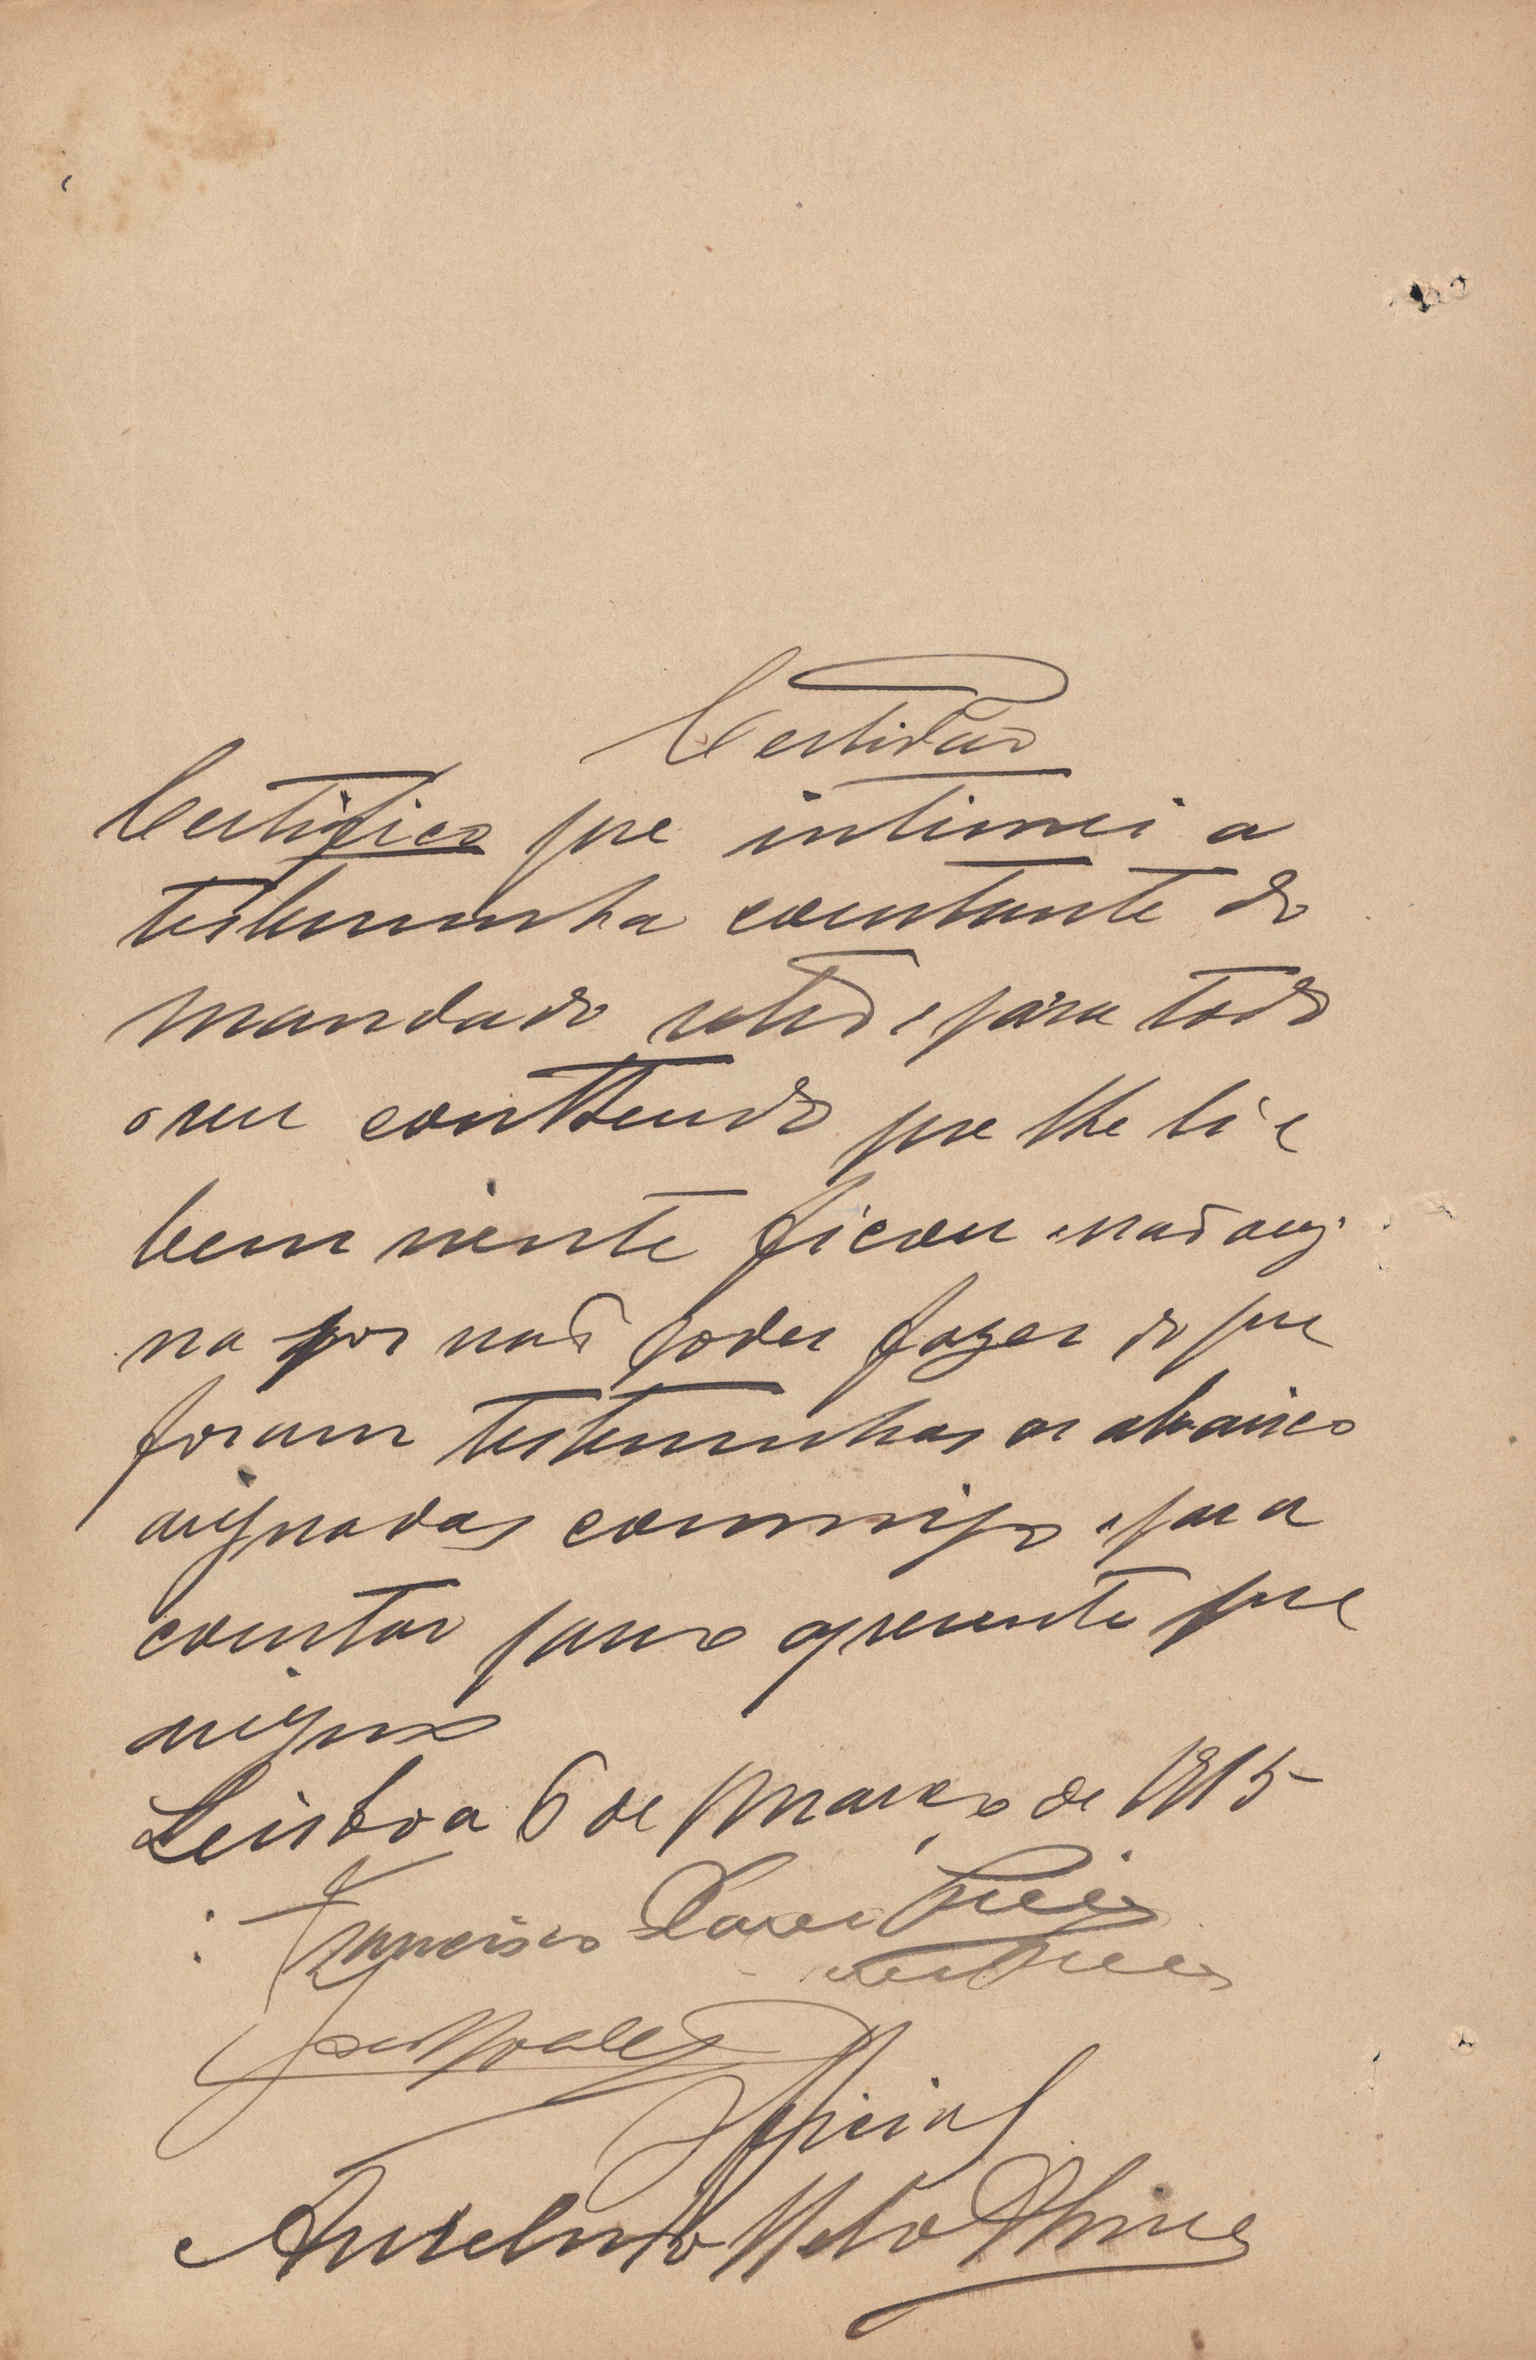 Certidão
Certifico que intimei a
testemunha constante do
mandado retro e para todo
o seu conttendo que lhe li e
bem siente ficou e não assig
na por não poder fazer do que
foram testemunhas os abaixo
assignadas commigo e para
constar passo apresente que
assigno
Leisboa 6 de Março de 1915
Francisco Xavier
Official
Anselmo